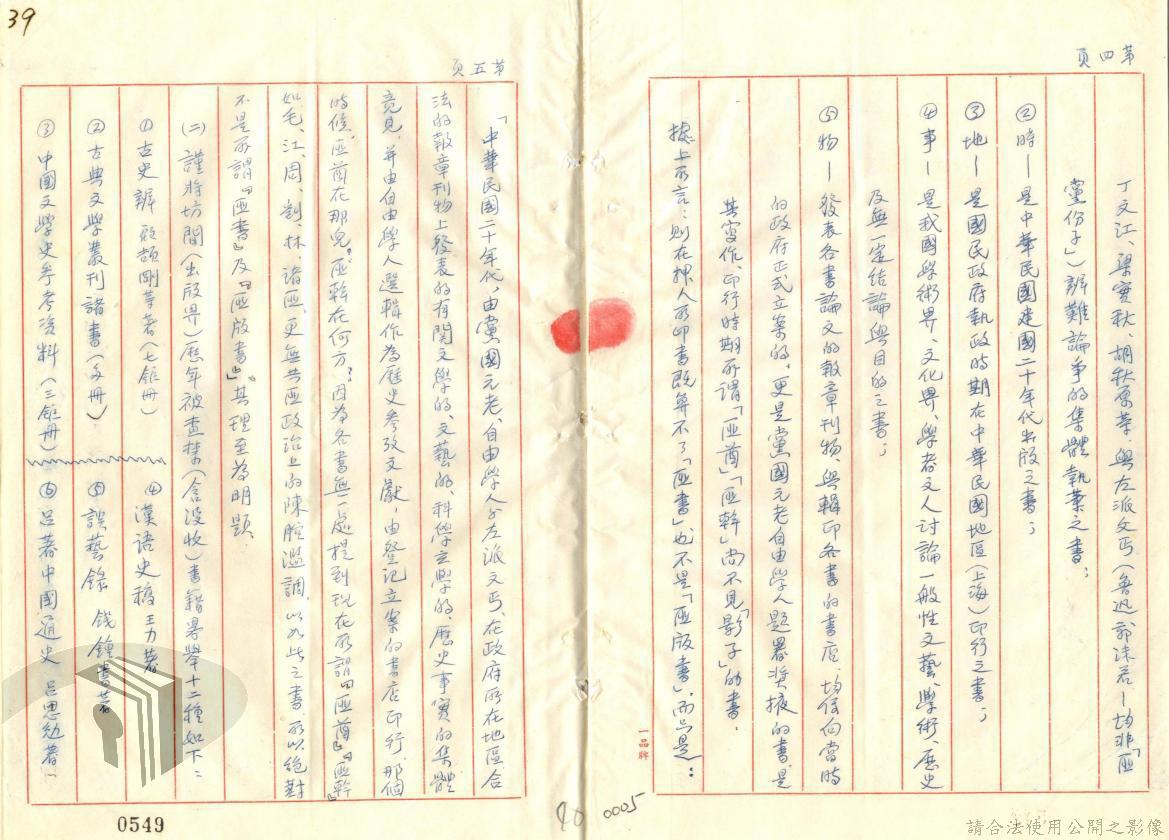 39
第四頁
丁文江、梁實秋、胡秋原等,與左派文丐(魯迅郭沫若—均非「匪
黨份子」)辨難論爭的集體執業之書;
②時—是中華民國建國二十年代出版之書;
③地—是國民政府執政時期在中華民國地區(上海)印行之書;
④事—是我國學術界、文化界、學者文人討論一般性文藝、學術、歷史
及無一定結論與目的之書;
⑤物—發表各書論文的報章刊物、與輯印各書的書店,均係向當時
的政府正式立案的,更是黨國元老自由學人題署奬掖的書,是
其寫作、印行時期所謂「匪酋」「匪幹」尚不見「影子」的書.
據上所言:則在押人所印書既算不了「匪書」也不是「匪版書」,而只是:
一品牌
第五頁
「中華民國二十年代,由黨國元老、自由學人與左派文丐、在政府所在地區合
法的報章刊物上發表的有関文學的、文藝的、科學玄學的、歷史事實的集體
意見,并由自由學人選輯作為歷史參攷文獻,由登記立案的書店印行,那個
時候,匪酋在那兒?匪幹在何方?因為各書無一處提到現在所謂「匪酋」「匪幹」
如毛、江、周、劉、林、諸匪,更無共匪政治上的陳腔濫調,以如此之書所以絕對
不是所謂『匪書』及『匪版書』,其理至為明顯.
(二)謹將坊間(出版界)歷年被查禁(含沒收)書籍畧舉十二種如下:
①古史辨 顧頡剛等著(七鉅冊)
②古典文學叢刊諸書(多冊)
③中國文學史參考資料(三鉅冊)
④漢語史稿 王力著
⑤談藝錄 錢鍾書著
⑥呂著中國通史 呂思勉著
0549
40
0005
請合法使用公開之影像